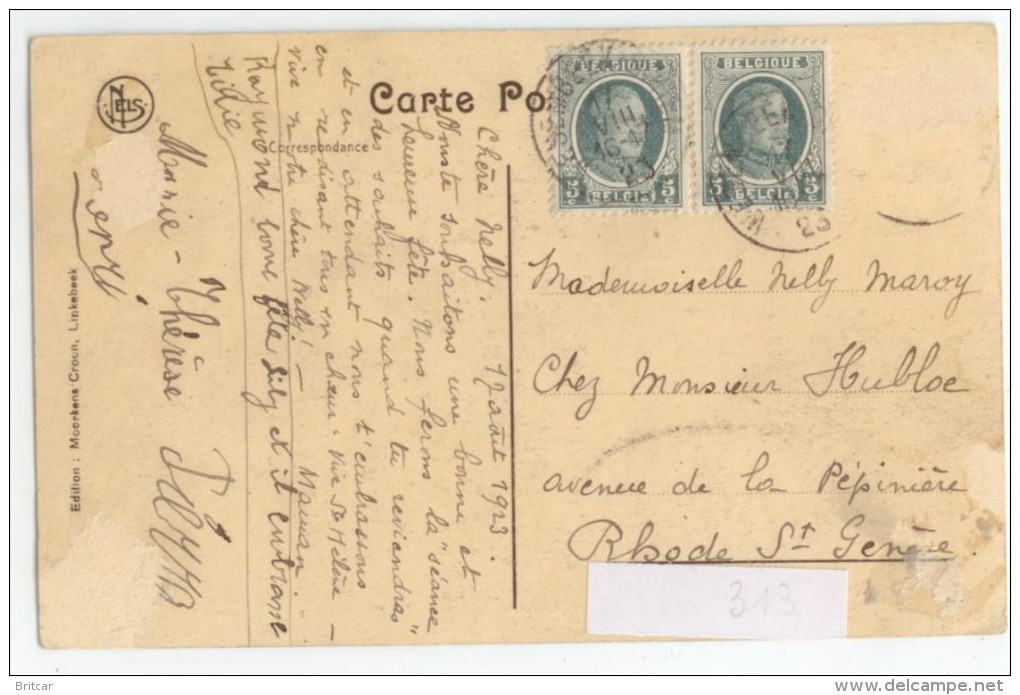 Carte Po
Correspondance
NELS
Edition : Moerkens-Croon, Linkebeek
BELGIQUE
5 5
BELGIE
BELGIQUE
5 5
BELGIE
17
VIII
23
23
Chère Nelly. 17 août 1923.
Nous te souhaitons une bonne et
heureuse fête. Nous ferons la "séance
des souhaits quand tu reviendras"
et en attendant nous t'embrassons
en redisant tous en chœur "Vive Ste Hélène –
vive notre chère Nelly! – Maman
Raymond bonne fête Lily et il embrasse
Lilie
Marie-Thérèse
Henri
Mademoiselle Nelly Maroy
Chez Monsieur Hubloe
avenue de la Pépinière
Rhode St Genèse
313
© Britcar
www.delcampe.net